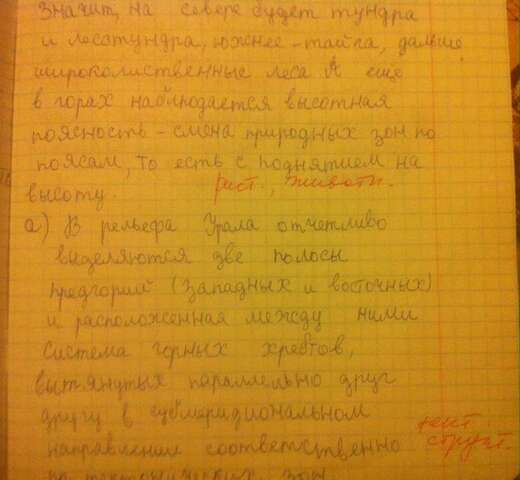 Значит, на севере будет тундра
и лесотундра, южнее - тайга, дальше
широколиственные леса А еще
в горах наблюдается высотная
поясность - смена природных зон по
поясам, то есть с поднятием на
высоту. раст., животн.
а) В рельефа Урала отчетливо
выделяются две полосы
предгорий (западных и восточных)
и расположенная между ними
система горных хребтов,
вытянутых параллельно друг
другу в субмеридиональном
направлении соответственно
тект. структ.
зон